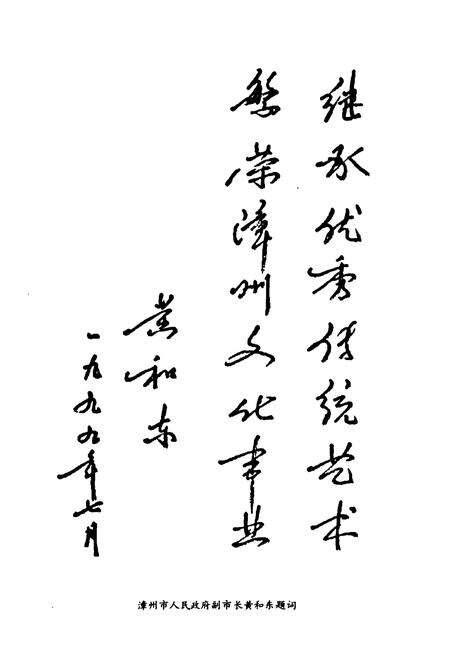 继承优秀传统艺术
繁荣漳州文化事业
黄和东
一九九九年七月
漳州市人民政府副市长黄和东题词